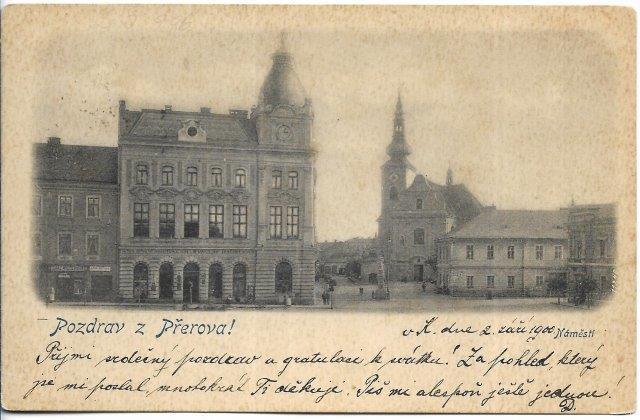 Pozdrav z Přerova!
v K. dne 2. září 1900
Náměstí
Přijmi srdečný pozdrav a gratulaci k svátku! Za pohled, který
jsi mi poslal, mnohokrát Ti děkuji. Piš mi alespoň ještě jednou!